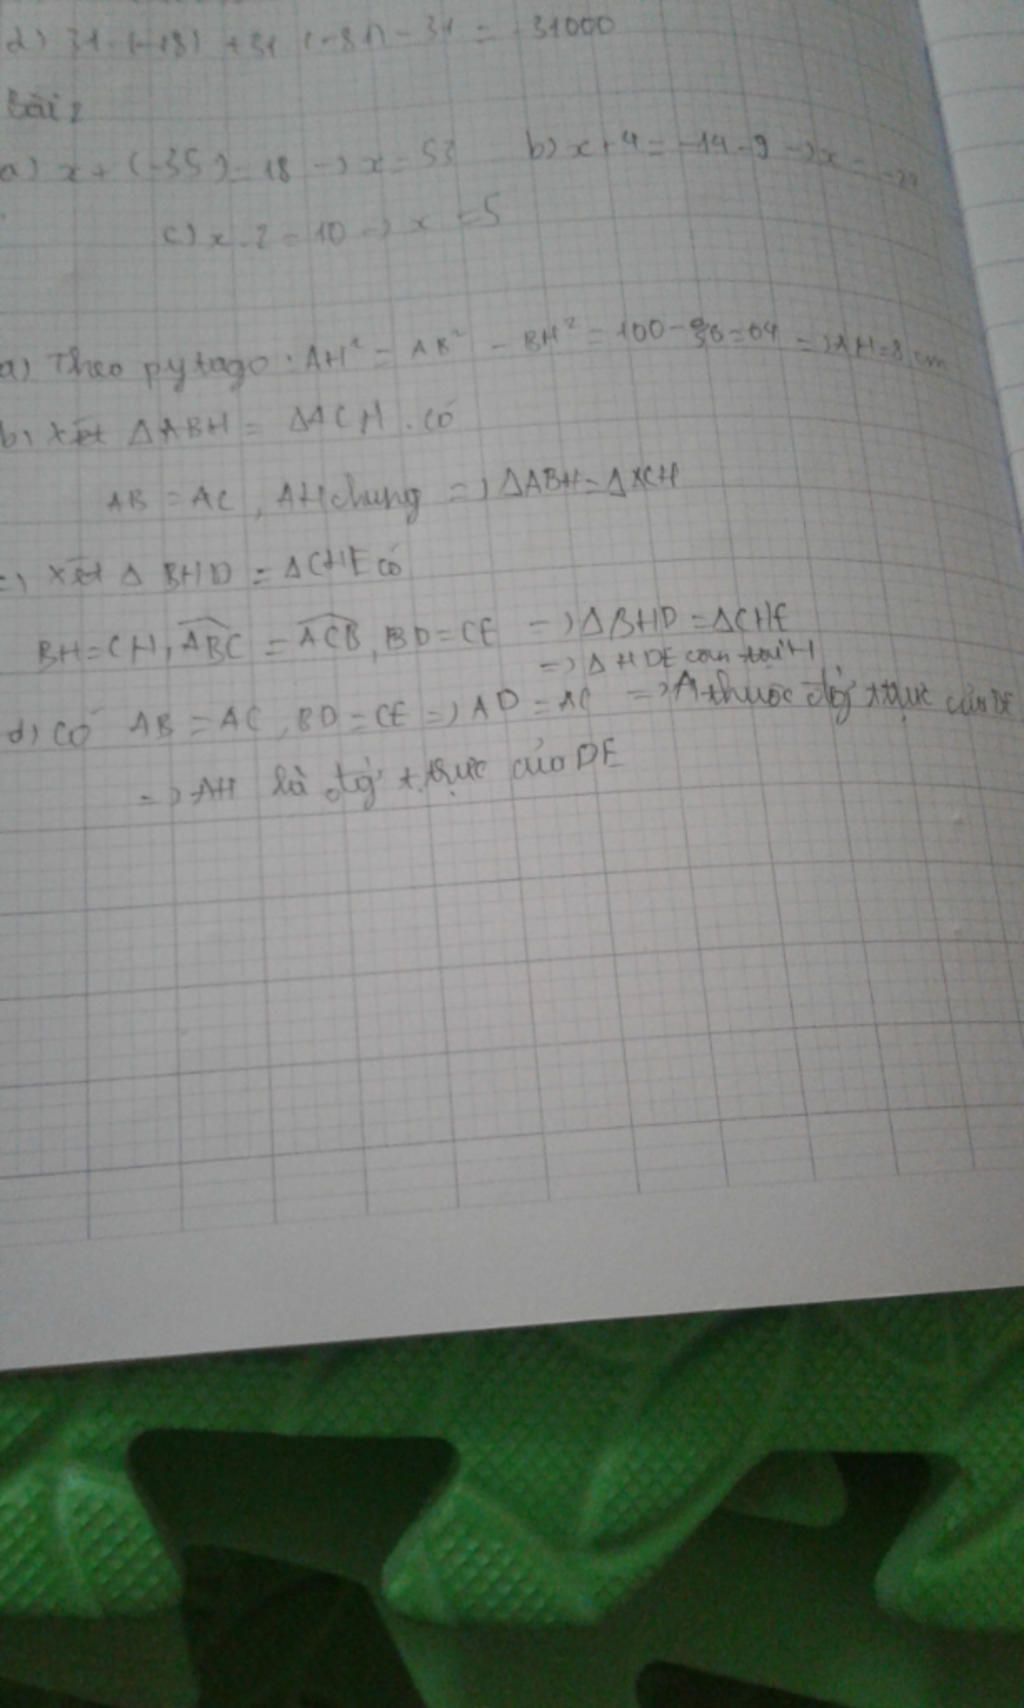 d) 31 . (-18) + 31 . (-81) - 31 = -31000
Bài 2
a) x + (-35) = 18 => x = 53 b) x + 4 = -14 - 9 => x =
c) x . 2 = 10 => x = 5
a) Theo pytago : AH² = AB² - BH² = 100 - 36 = 64 => AH = 8 cm
b) Xét ΔABH = ΔACH . có
AB = AC , AH chung => ΔABH = ΔACH
c) Xét Δ BHD = ΔCHE có
BH = CH, ABC = ACB, BD = CE => ΔBHD = ΔCHE
=> Δ HDE cân tại H
d) Có AB = AC , BD = CE => AD = AC => A thuộc đg t.trực của DE
=> AH là đg t.trực của DE